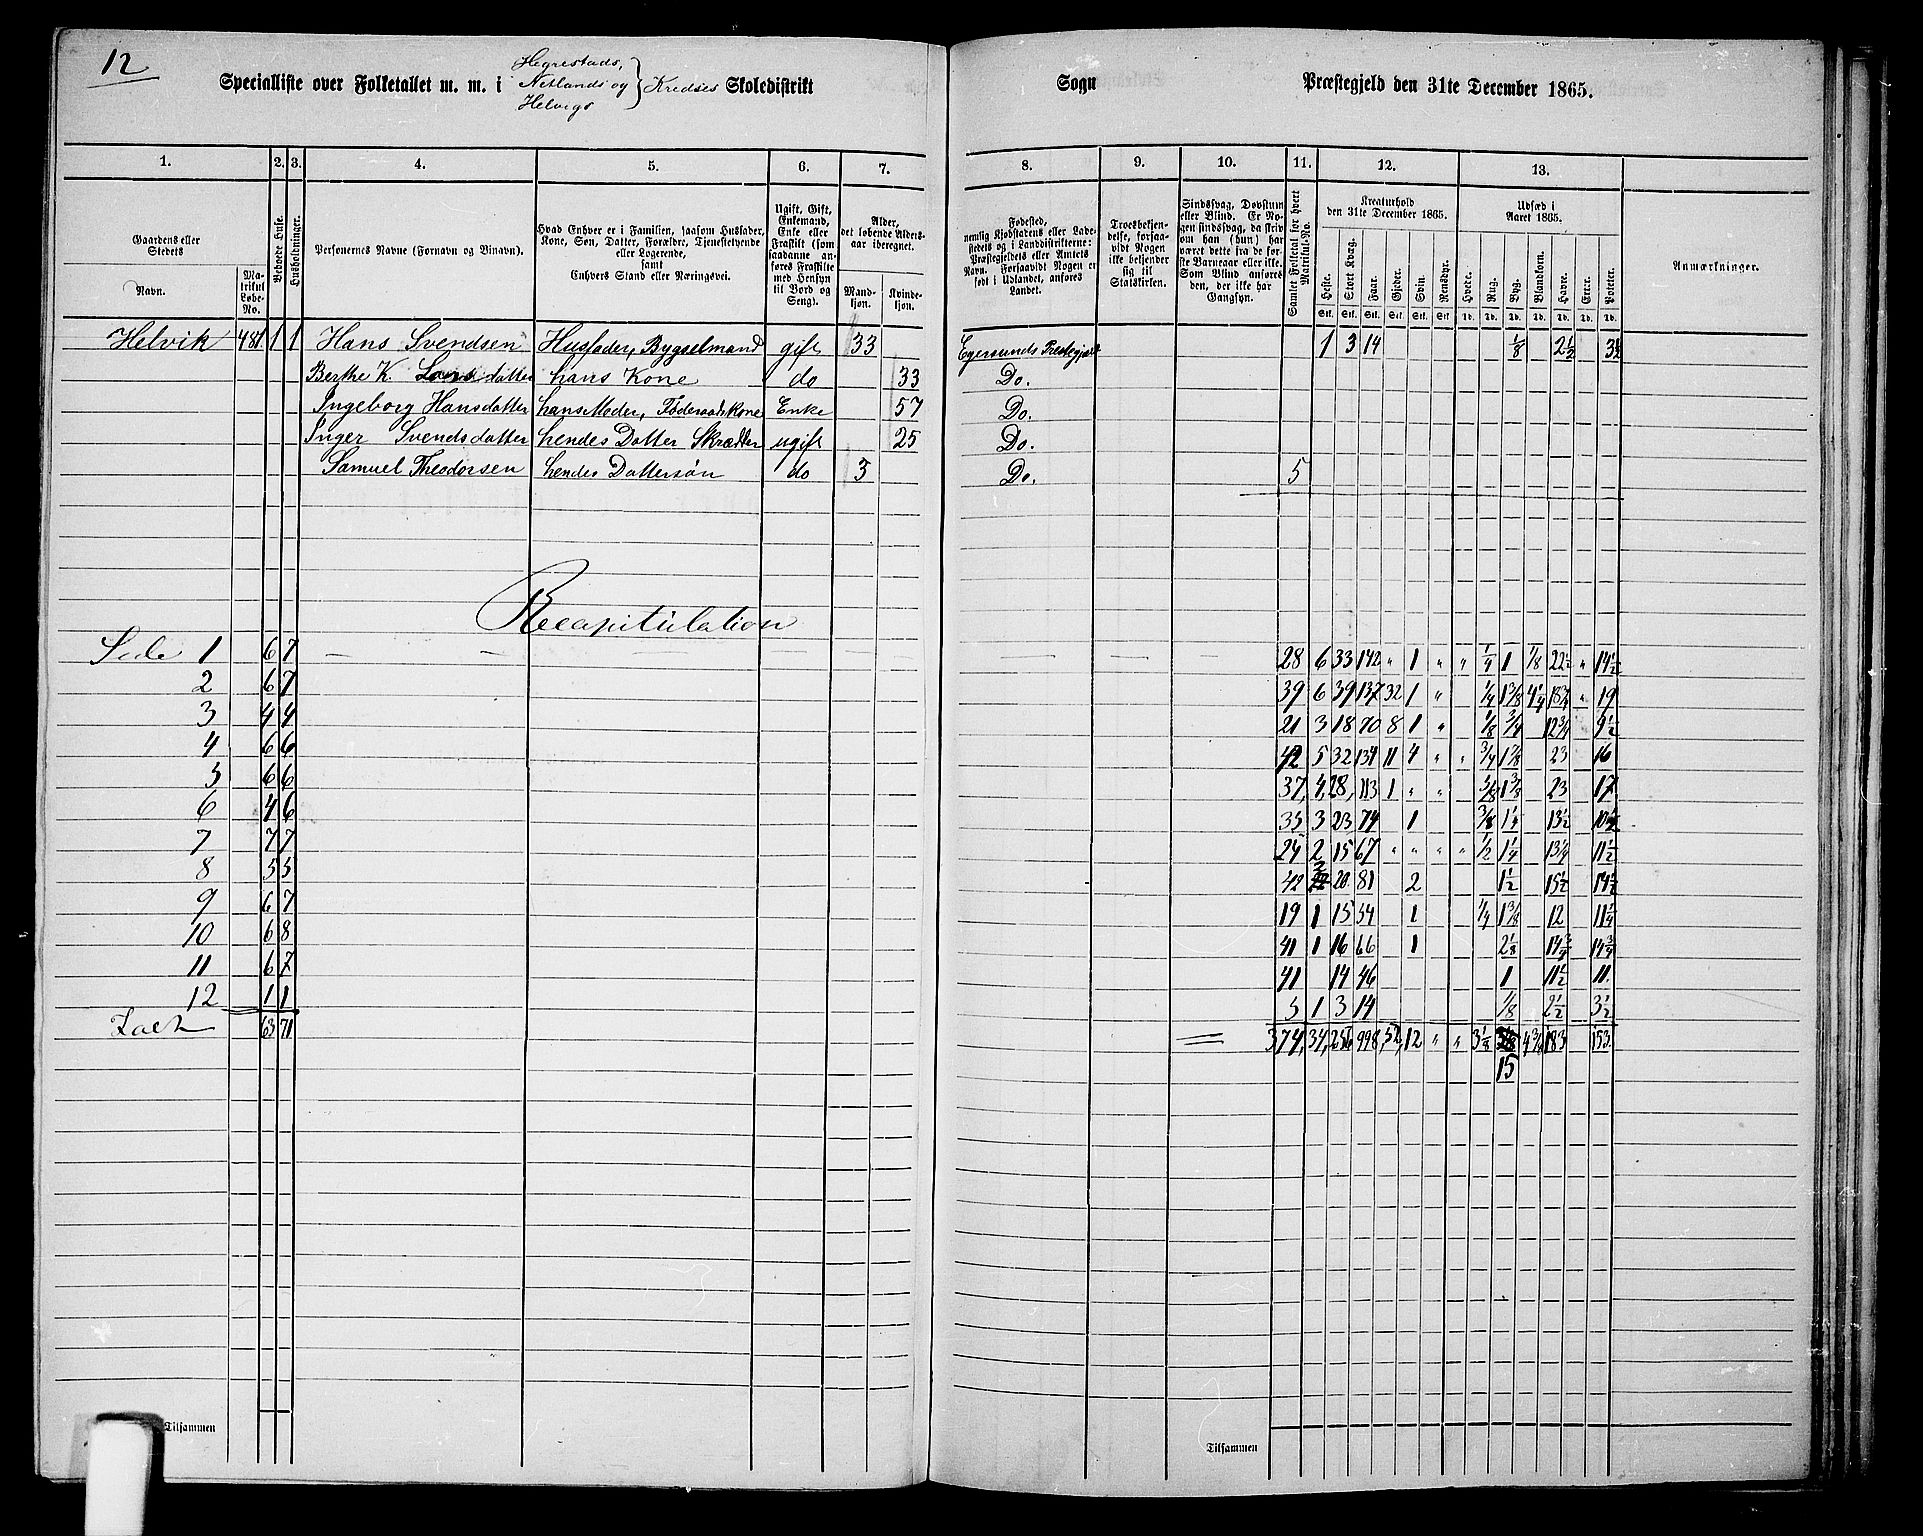 12
Specialliste over Folketallet m. m. i Hegrestads, Netlands og Helvigs Kredses Skoledistrikt Sogn Præstegjeld den 31te December 1865.
1. 2. 3. 4. 5. 6. 7. 8. 9. 10. 11. 12. 13.
Gaardens eller Stedets
Navn.
Matrikul Løbe-No.
Beboede Huse.
Husholdninger.
Personernes Navne (Fornavn og Binavn).
Hvad Enhver er i Familien, saasom Husfader, Kone, Søn, Datter, Forældre, Tjenestetyende eller Logerende, samt Enhvers Stand eller Næringsvei.
Ugift, Gift, Enkemand, Enke eller Fraskilt (som saadanne anføres Fraskilte med Hensyn til Bord og Seng).
Alder, det løbende Aldersaar iberegnet.
Mandkjøn. Kvindekjøn.
Fødested, nemlig Kjøbstadens eller Ladestedets og i Landdistrikterne: Præstegjeldets eller Amtets Navn. Forsaavidt Nogen er født i Udlandet, anføres Landet.
Troesbekjendelse, forsaavidt Nogen ikke bekjender sig til Statskirken.
Sindssvag, Døvstum eller Blind. Er Nogen sindssvag, da skriv om han (hun) har været dette fra de første Barneaar eller ikke. Som Blind anføres den, der ikke har Gangsyn.
Samlet Folketal for hvert Matrikul-No.
Kreaturhold den 31te December 1865.
Heste. Stort Kvæg. Faar. Gjeder. Svin. Rensdyr.
Udsæd i Aaret 1865.
Hvede. Rug. Byg. Blandkorn. Havre. Erter. Poteter.
Stk. Stk. Stk. Stk. Stk. Stk. Td. Td. Td. Td. Td. Td. Td.
Anmærkninger.
Helvik 481 1 1 Hans Svendsen Husfader, Bygselmand gift 33 Egersunds Prestegjeld 1 3 14 1/8 2 1/2 3 1/2
Berthe K. Larsdatter hans Kone do 33 Do.
Ingeborg Hansdatter hans Moder, Føderaadskone Enke 57 Do.
Inger Svendsdatter hendes Datter Skrædder ugift 25 Do.
Samuel Theodorsen hendes Dattersøn do 3 Do. 5
Recapitulation
Side 1 6 7 28 6 33 142 " 1 " " 1/4 1 7/8 22 1/2 " 14 1/2
2 6 7 39 6 39 137 32 1 " 1/4 1 3/8 4 1/4 18 3/4 " 19
3 4 4 21 3 18 70 8 1 " 1/8 3/4 12 3/4 9 1/2
4 6 6 42 5 32 134 11 4 " " 3/4 1 7/8 23 16
5 6 6 37, 4, 28, 113 1 " " 5/8 1 3/8 23 17
6 4 6 35 3 23 74 1 3/8 1 1/4 13 1/2 10 1/2
7 7 7 24 2 15 67 " " " " 1/2 1 1/4 13 1/4 11 1/2
8 5 5 42 2 20 81 2 1 1/2 15 1/2 14 1/2
9 6 7 19 1 15 54 1 1/4 1 3/8 12 11 1/4
10 6 8 41 1 16 66 1 2 1/8 14 3/4 14 3/4
11 6 7 41 14 46 1 11 1/2 11.
12 1 1 5 1 3 14 1/8 2 1/2 3 1/2
Ialt 63 71 374, 34, 256 998, 52, 12 " " 3 1/8 4 3/8 183 153.
15
Tilsammen
Tilsammen